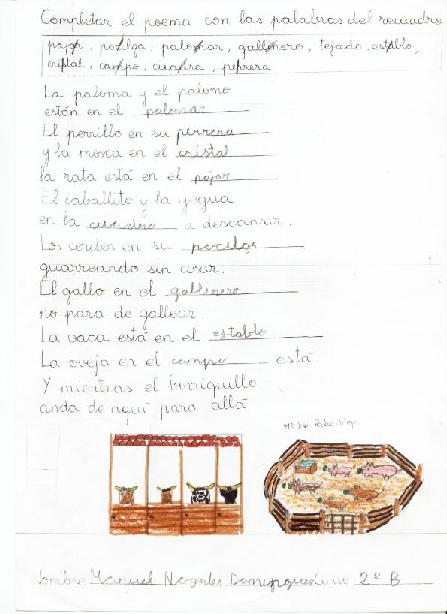 Completar el poema con las palabras del recuadro
pajar, pocilga, palomar, gallinero, tejado, establo,
cristal, campo, cuadra, perrera
La paloma y el palomo
están en el palomar
El perrillo en su perrera
y la mosca en el cristal
la rata está en el pajar
El caballito y la yegua
en la cuadra a descansar.
Los cerdos en su pocilga
guarreando sin cesar.
El gallo en el gallinero
no para de gallear.
La vaca está en el establo
La oveja en el campo está
Y mientras el borriquillo
anda de aquí para allá
Nombre Manuel Nogales 2º B